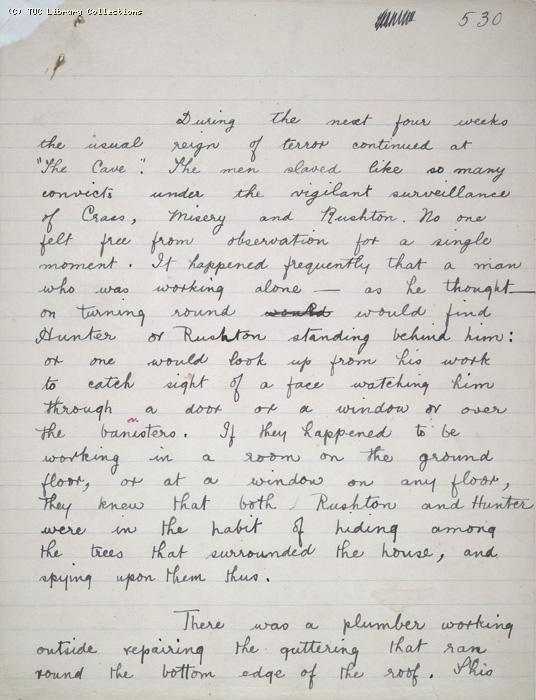 (C) TUC Library Collections
530
During the next four weeks
the usual reign of terror continued at
"The Cave". The men slaved like so many
convicts under the vigilant surveillance
of Crass, Misery and Rushton. No one
felt free from observation for a single
moment. It happened frequently that a man
who was working alone — as he thought —
on turning round would would find
Hunter or Rushton standing behind him:
or one would look up from his work
to catch sight of a face watching him
through a door or a window or over
the banisters. If they happened to be
working in a room on the ground
floor, or at a window on any floor,
they knew that both Rushton and Hunter
were in the habit of hiding among
the trees that surrounded the house, and
spying upon them thus.
There was a plumber working
outside repairing the guttering that ran
round the bottom edge of the roof. This